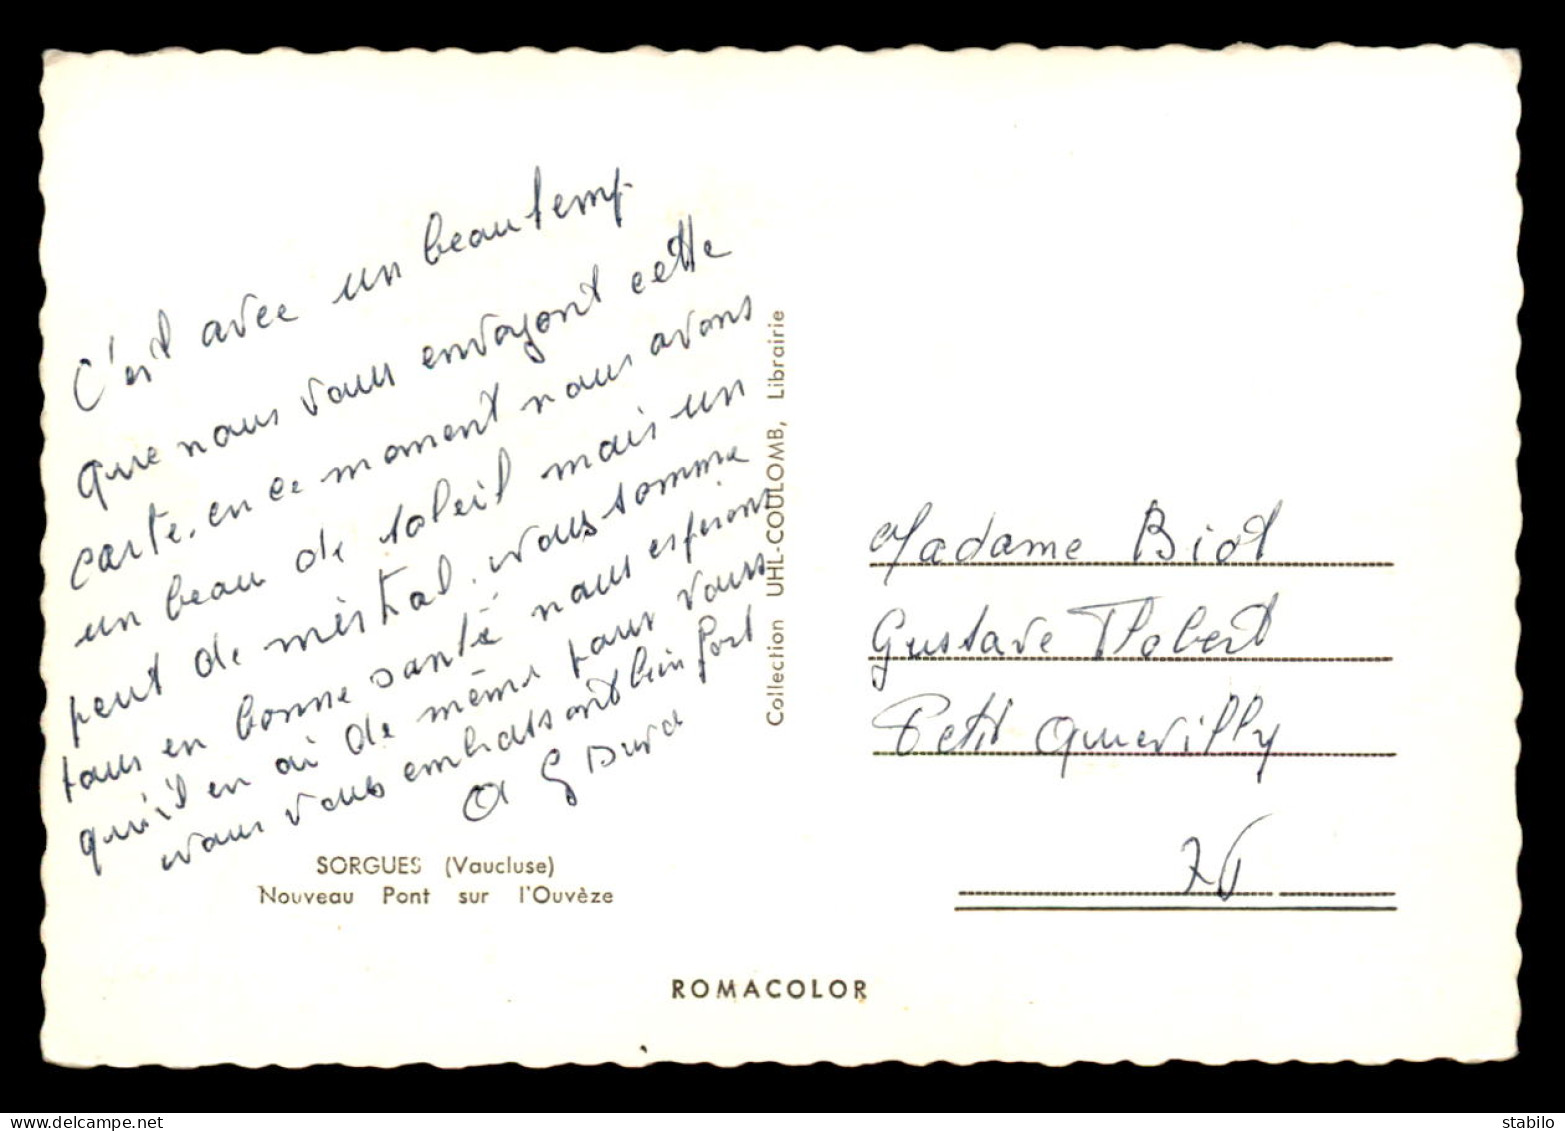 C'est avec un beau temp
que nous vous envoyont cette
carte. en ce moment nous avons
un beau de soleil mais un
peut de mistral. nous somme
tous en bonne santé nous esperons
qu'il en ai de même pour vous
nous vous embrassont bien fort
SORGUES (Vaucluse)
Nouveau Pont sur l'Ouvèze
Collection UHL-COULOMB, Librairie
ROMACOLOR
Madame Biot
Gustave Flobert
Petit Quevilly
76
stabilo